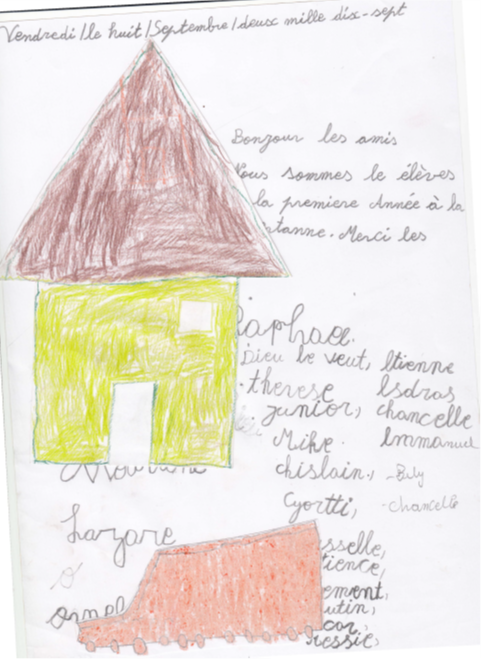 Vendredi/le huit/Septembre/deux mille dix-sept
Bonjour les amis
Nous sommes le élèves
la premiere Année à la
tanne. Merci les
Raphae.
Dieu le veut, Etienne
therese Esdras
junior, chancelle
Mike. Emmanuel
chislain, -Buly
Cyortti, -chancelle
Lazare
sselle,
tience,
ement,
Ornel utin,
cor,
ressie,